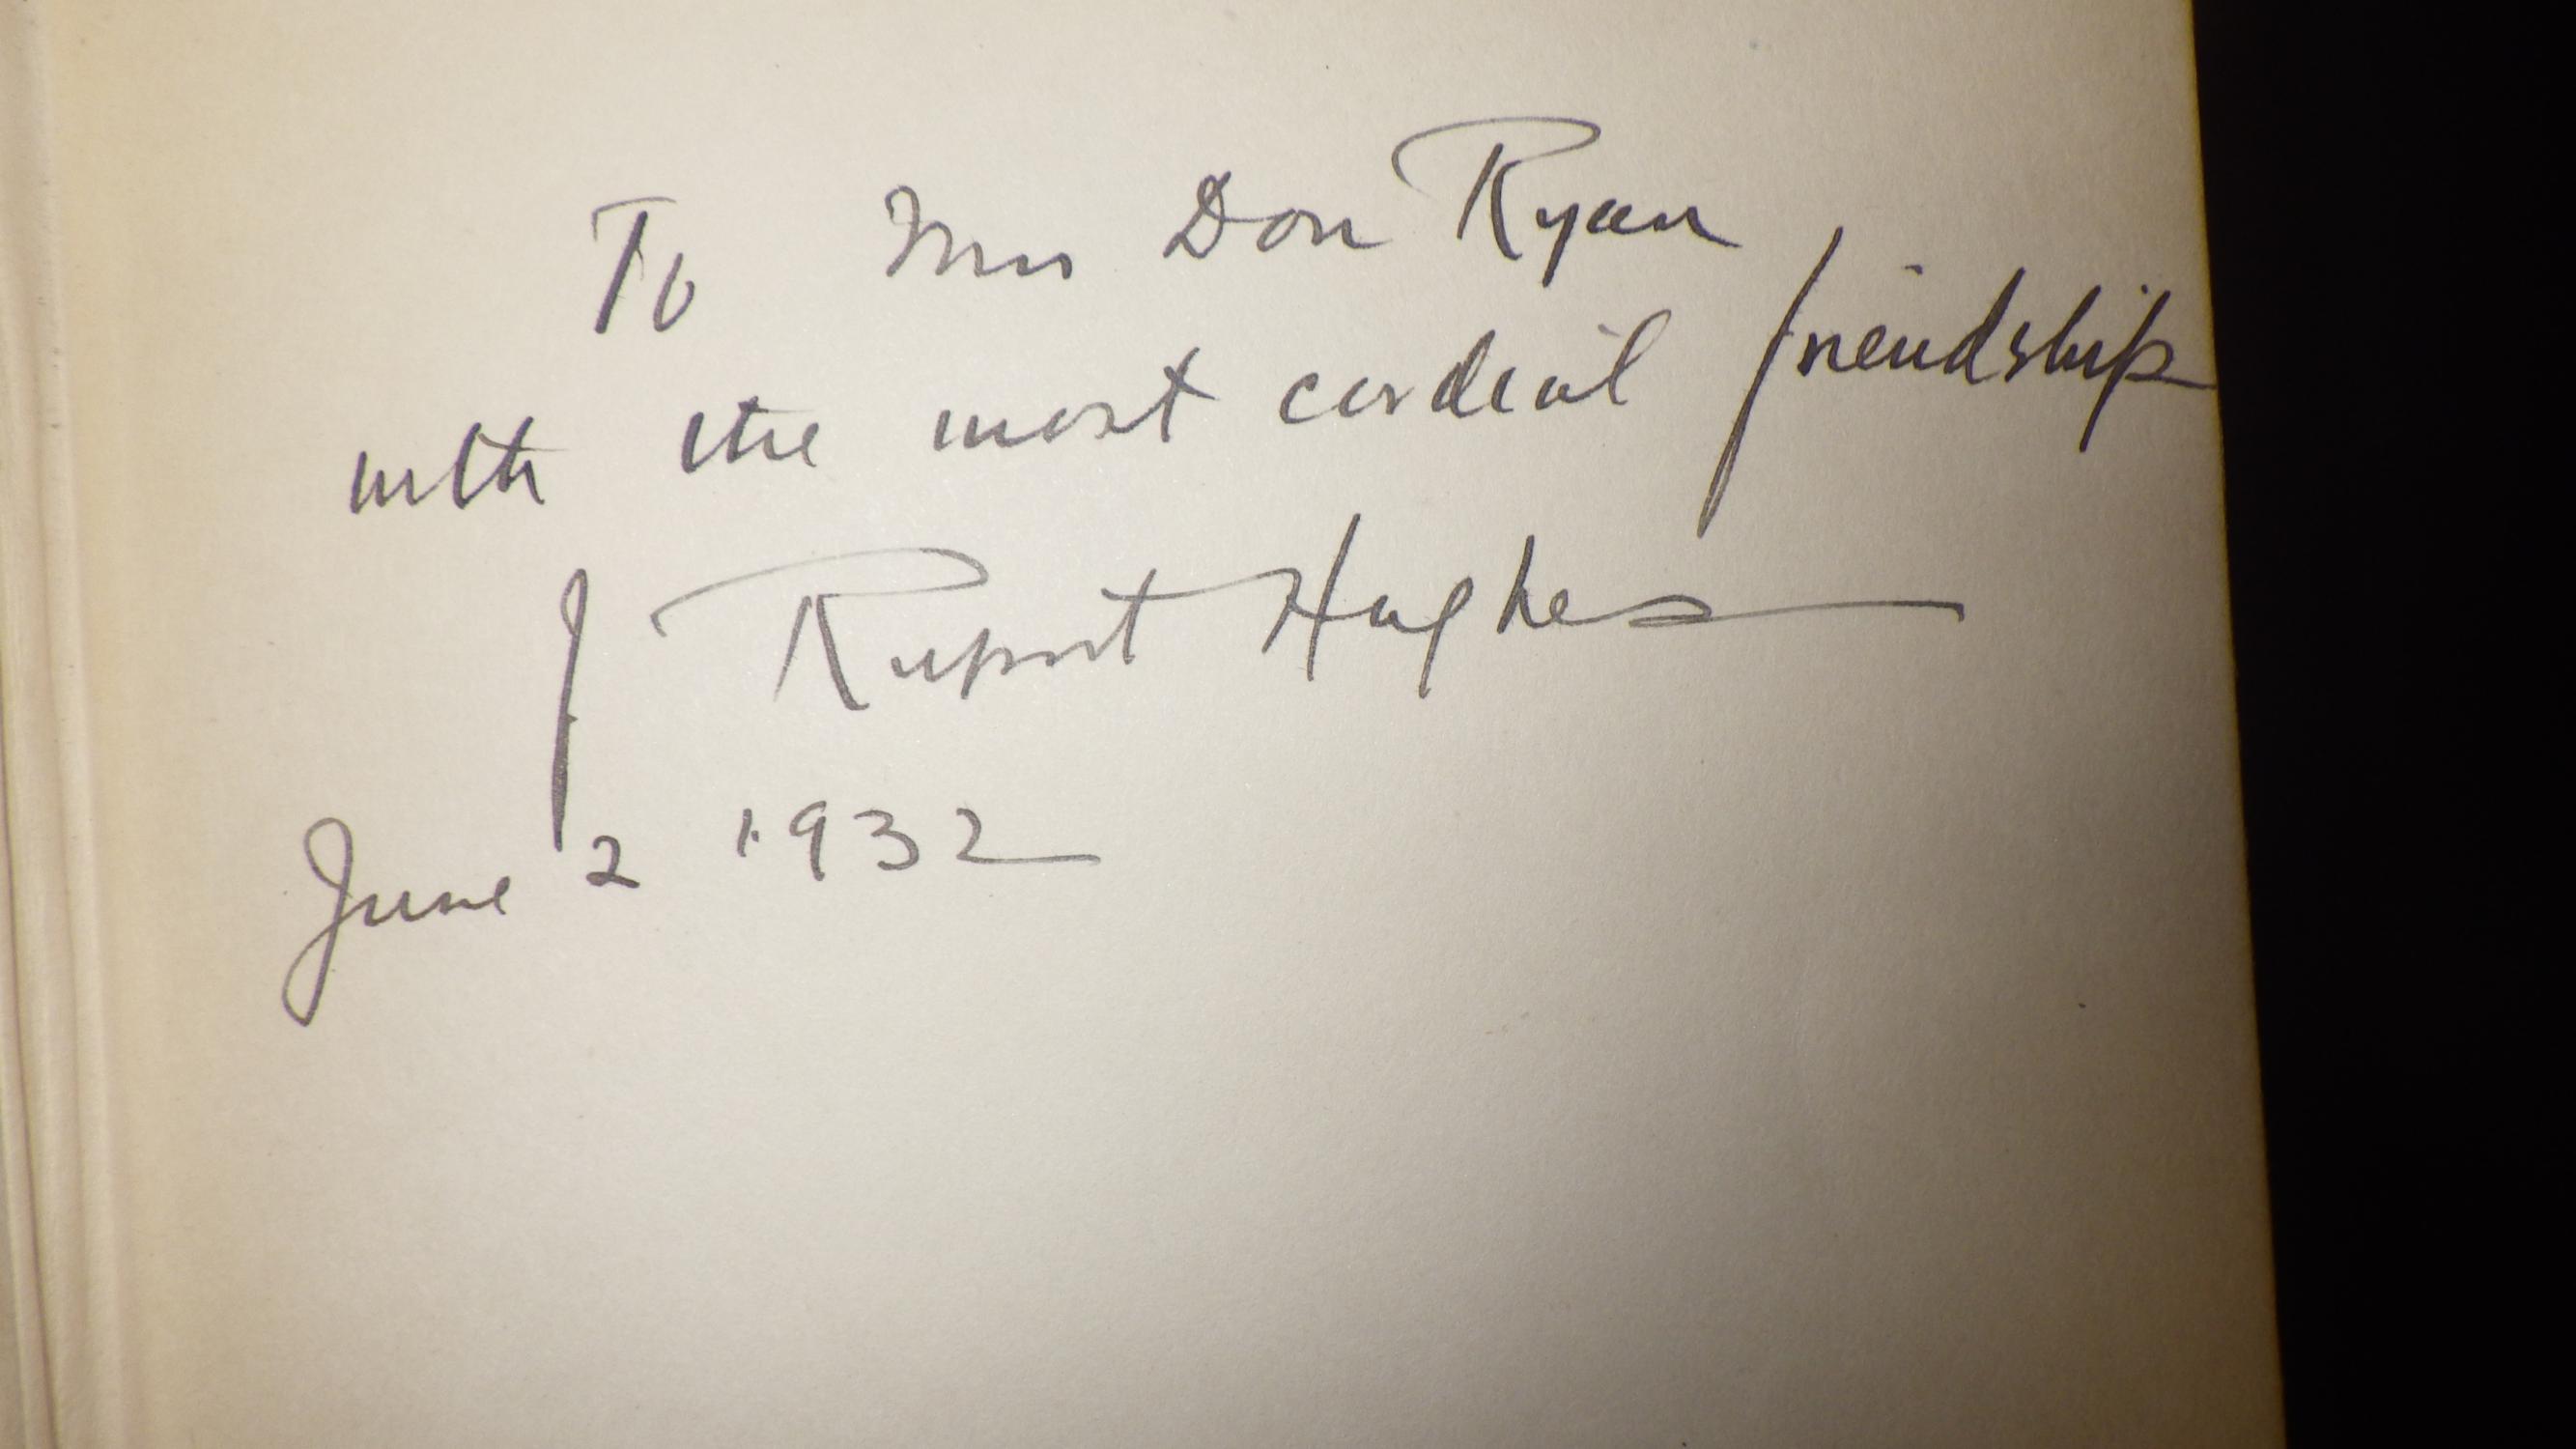 To Mrs Don Ryan
with the most cordial friendship
Rupert Hughes
June 2 1932